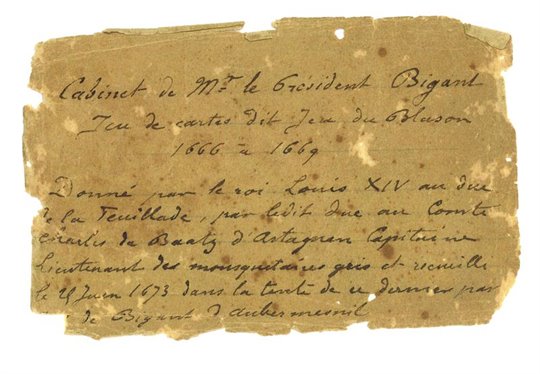 Cabinet de Mr. le Président Bigant
Jeu de cartes dit Jeu du Blason
1666 à 1669
Donné par le roi Louis XIV au duc
de la Feuillade, par ledit duc au Comte
Charles de Baatz d'Artagnan Capitaine
lieutenant des mousquetaires gris et recueilli
le 25 Juin 1673 dans la tente de ce dernier par
de Bigant d'Aubermesnil